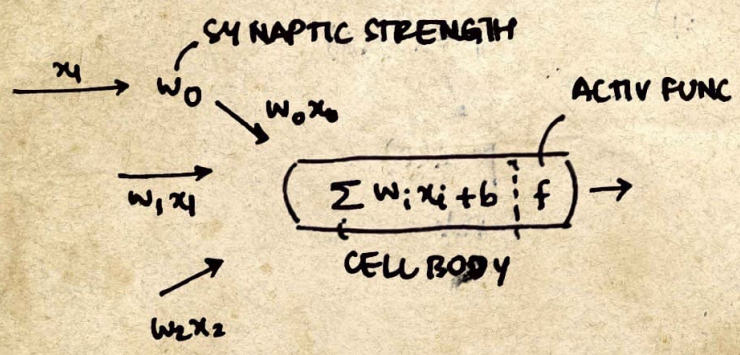 SYNAPTIC STRENGTH
x₁
w₀
w₀x₀
ACTIV FUNC
w₁x₁
Σ wᵢxᵢ + b
f
CELL BODY
w₂x₂